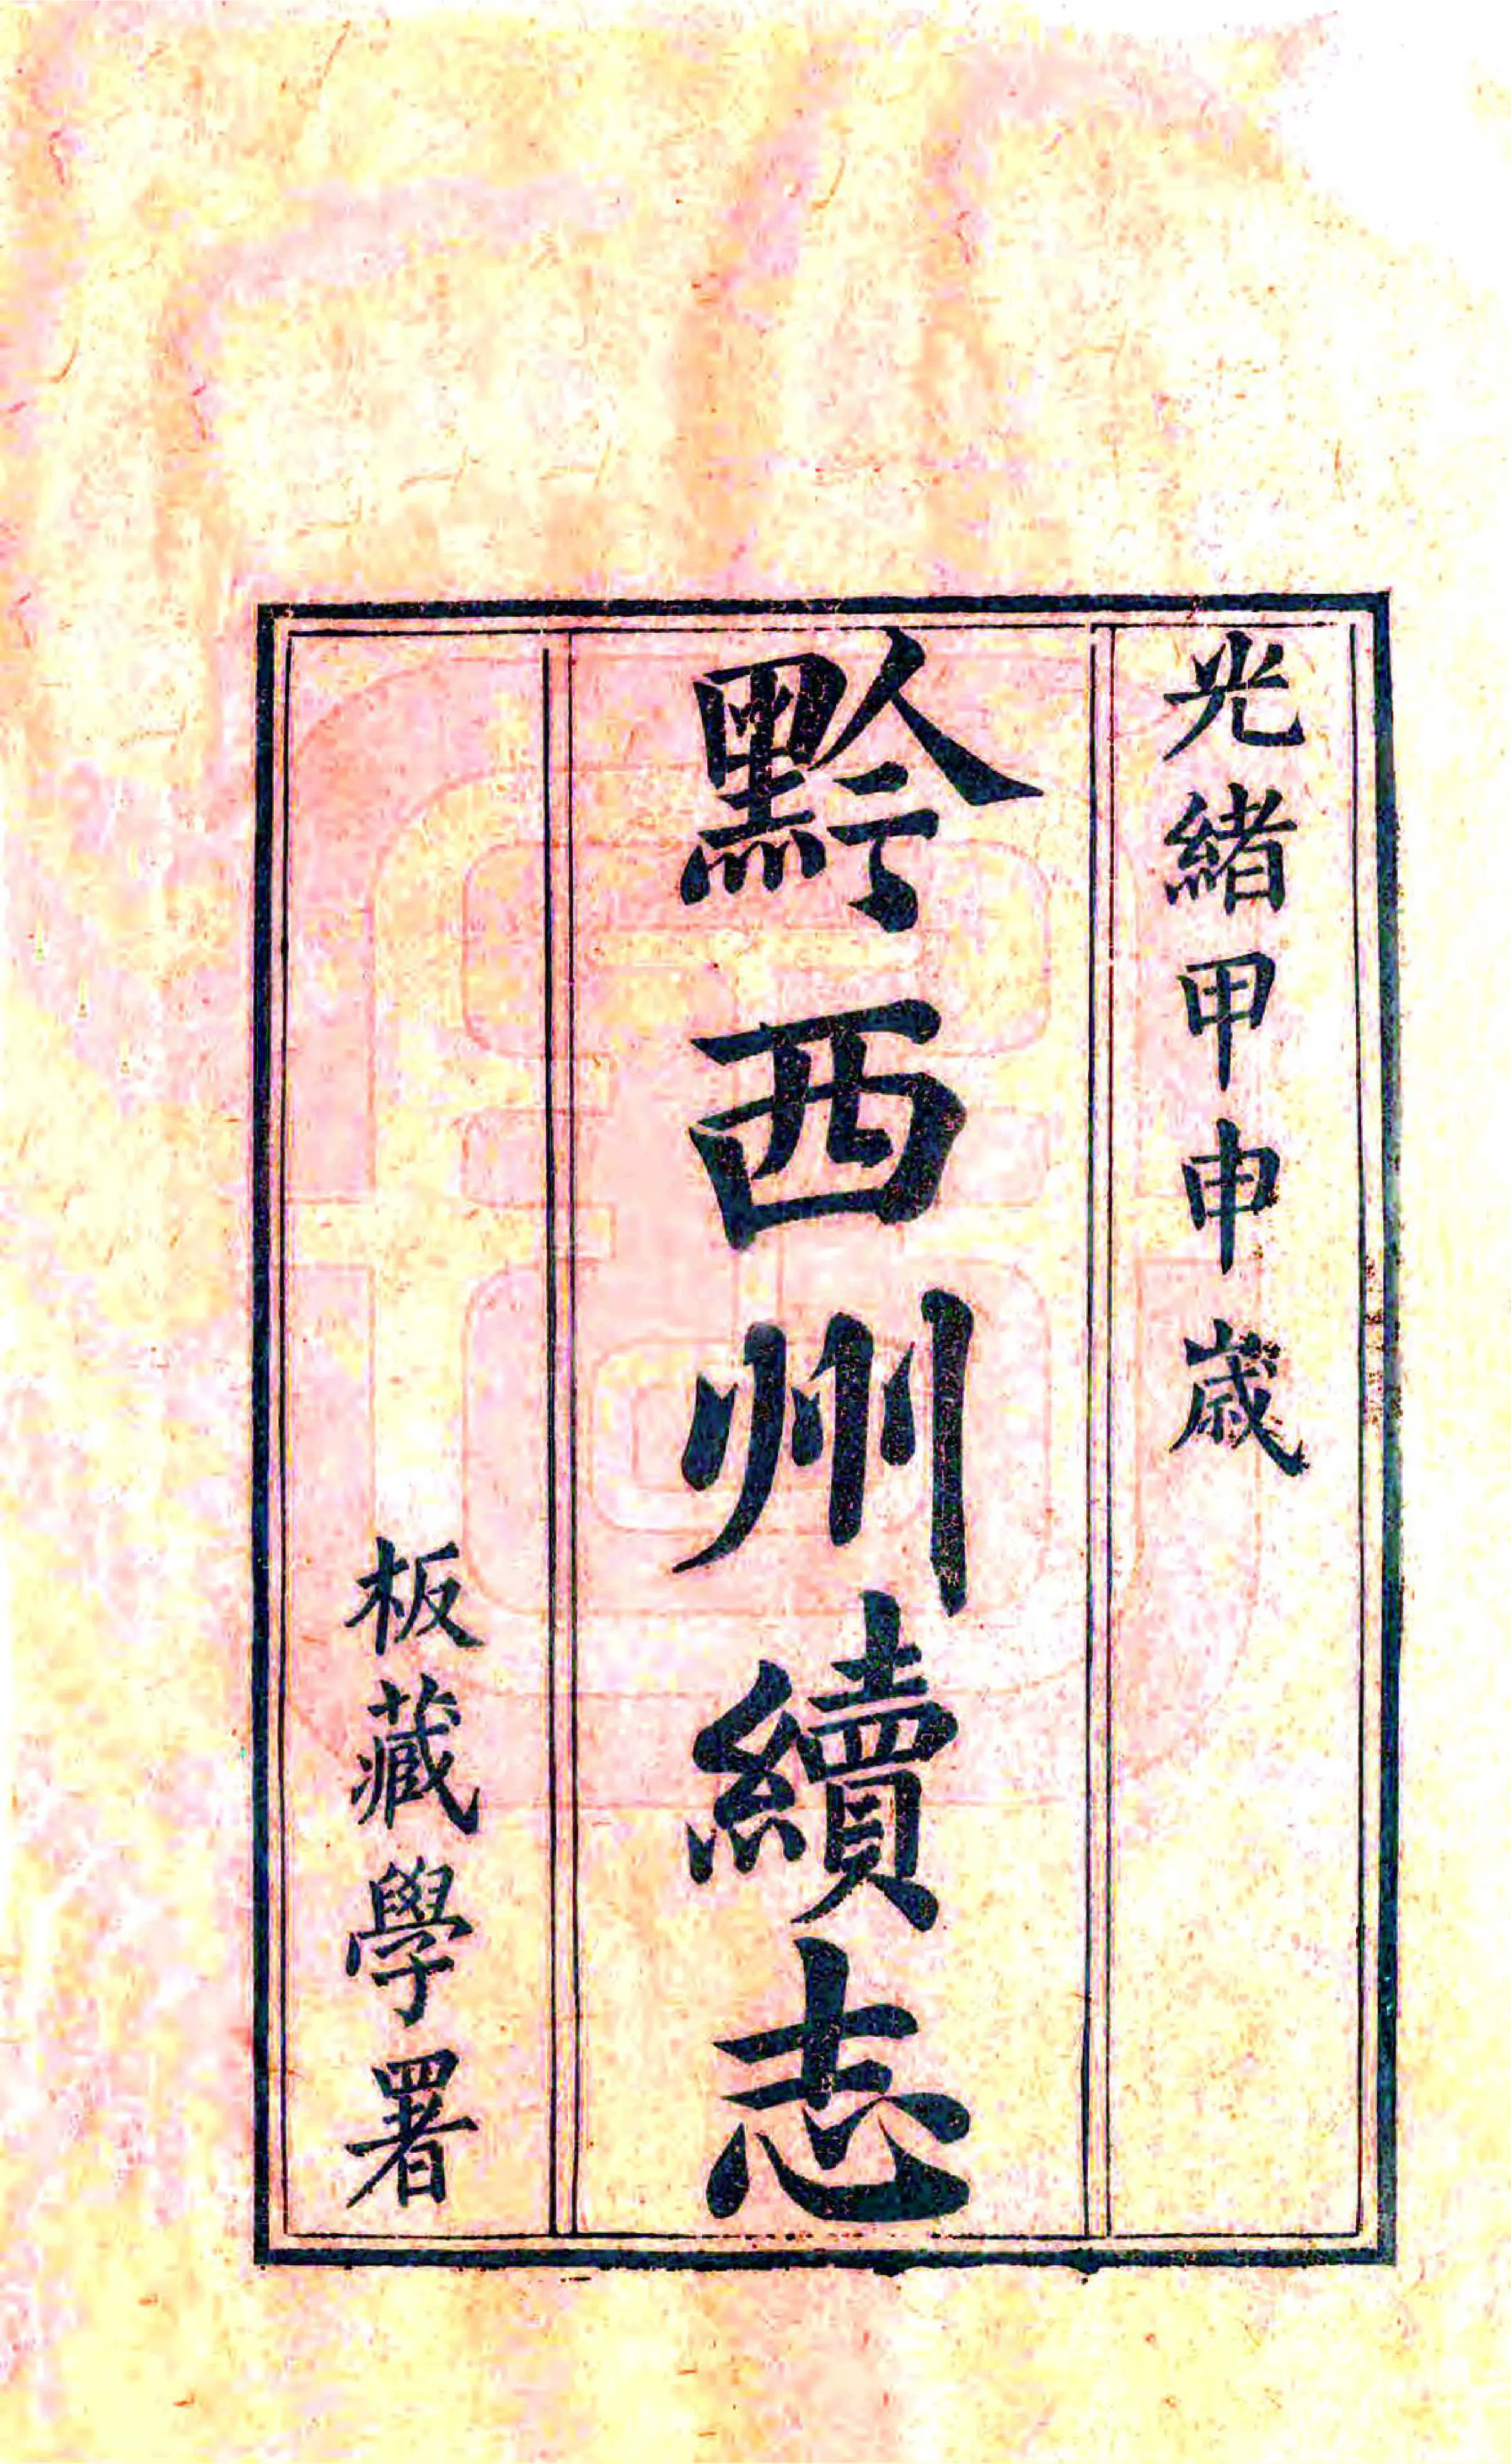 光緒甲申歲
黔西州續志
板藏學署